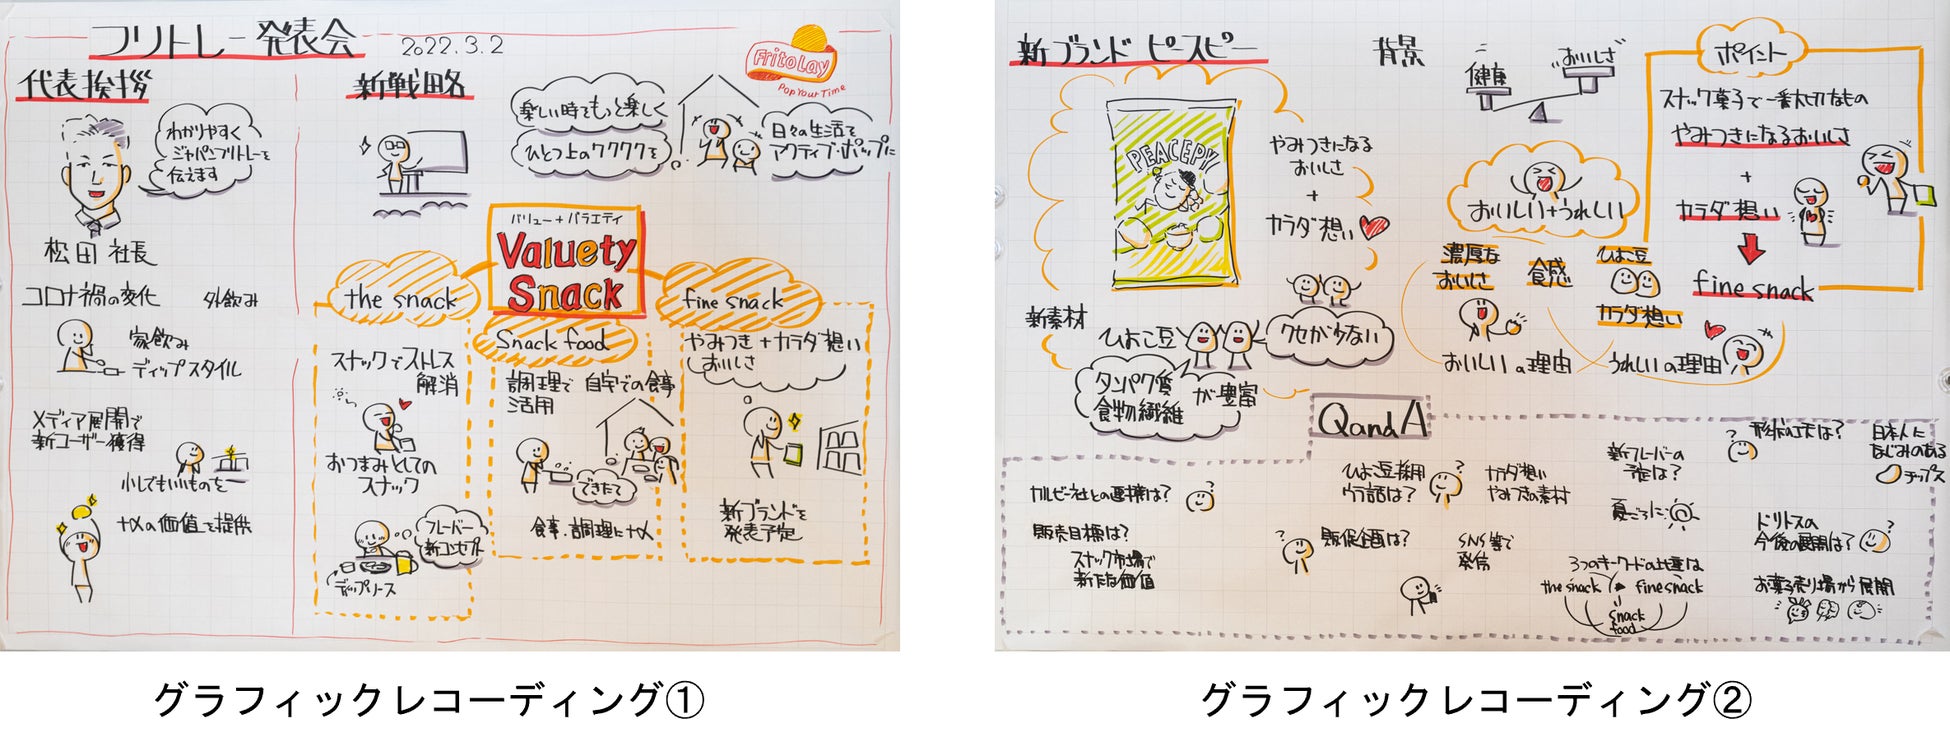 フリトレー発表会
2022.3.2
FritoLay
Pop Your Time
代表挨拶
わかりやすく
ジャパンフリトレーを
伝えます
松田 社長
コロナ禍の変化
外飲み
家飲み
ディップスタイル
メディア展開で
新ユーザー獲得
少しでもいいものを
+αの価値を提供
新戦略
楽しい時をもっと楽しく
ひとつ上のワクワクを
日々の生活を
アクティブ・ポップに
バリュー+バラエティ
Valuety
Snack
the snack
スナックでストレス
解消
おつまみとしての
スナック
フレーバー
新コンセプト
ディップソース
Snack food
調理で 自宅での食事
活用
できたて
食事・調理に+α
fine snack
やみつき+カラダ想い
おいしさ
新ブランドを
発表予定
グラフィックレコーディング①
新ブランド ピースピー
PEACEPY
やみつきになる
おいしさ
+
カラダ想い
新素材
ひよこ豆
クセが少ない
タンパク質
食物繊維
が豊富
背景
健康
おいしさ
おいしい+うれしい
濃厚な
おいしさ
食感
ひよこ豆
カラダ想い
おいしいの理由
うれしいの理由
ポイント
スナック菓子で一番大切なもの
やみつきになるおいしさ
+
カラダ想い
fine snack
QandA
カルビー社との連携は?
販売目標は?
スナック市場で
新たな価値
ひよこ豆採用
ウラ話は?
カラダ想い
やみつきの素材
販促企画は?
SNS等で
発信
新フレーバーの
予定は?
夏ごろに
3つのキーワードの比重は
the snack
fine snack
snack
food
形状の工夫は?
日本人に
なじみのある
チップス
ドリトスの
今後の展開は?
お菓子売り場から展開
グラフィックレコーディング②